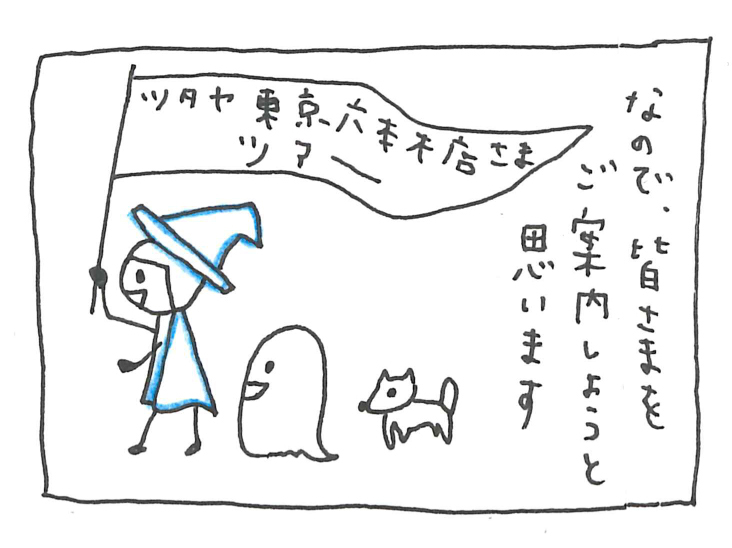 なので、皆さまを
ご案内しようと
思います
ツタヤ東京六本木店さま
ツアー